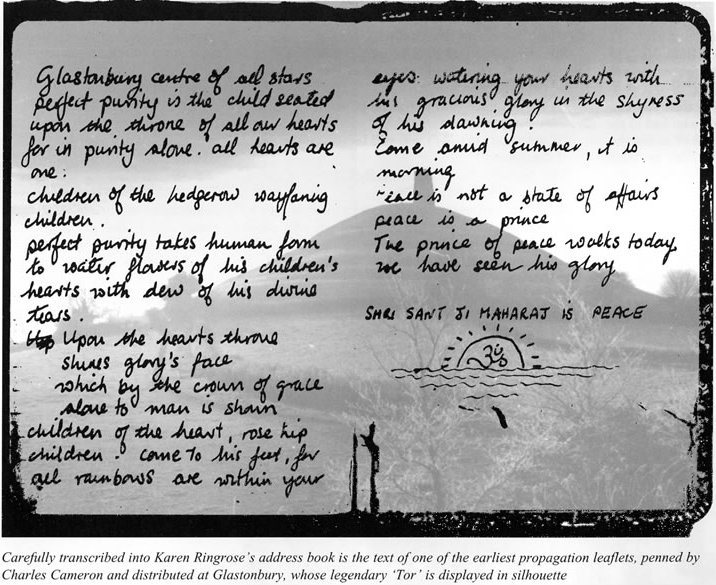 Glastonbury centre of all stars
perfect purity is the child seated
upon the throne of all our hearts
for in purity alone. all hearts are
one.
children of the hedgerow wayfaring
children.
perfect purity takes human form
to water flowers of his children's
hearts with dew of his divine
tears.
Upon the hearts throne
shines glory's face
which by the crown of grace
alone to man is shown
children of the heart, rose hip
children. come to his feet, for
all rainbows are within your
eyes. watering your hearts with
his gracious glory in the shyness
of his dawning.
Come amid summer, it is
morning
Peace is not a state of affairs
peace is a prince
The prince of peace walks today
we have seen his glory
SHRI SANT JI MAHARAJ IS PEACE
Carefully transcribed into Karen Ringrose's address book is the text of one of the earliest propagation leaflets, penned by
Charles Cameron and distributed at Glastonbury, whose legendary 'Tor' is displayed in silhouette